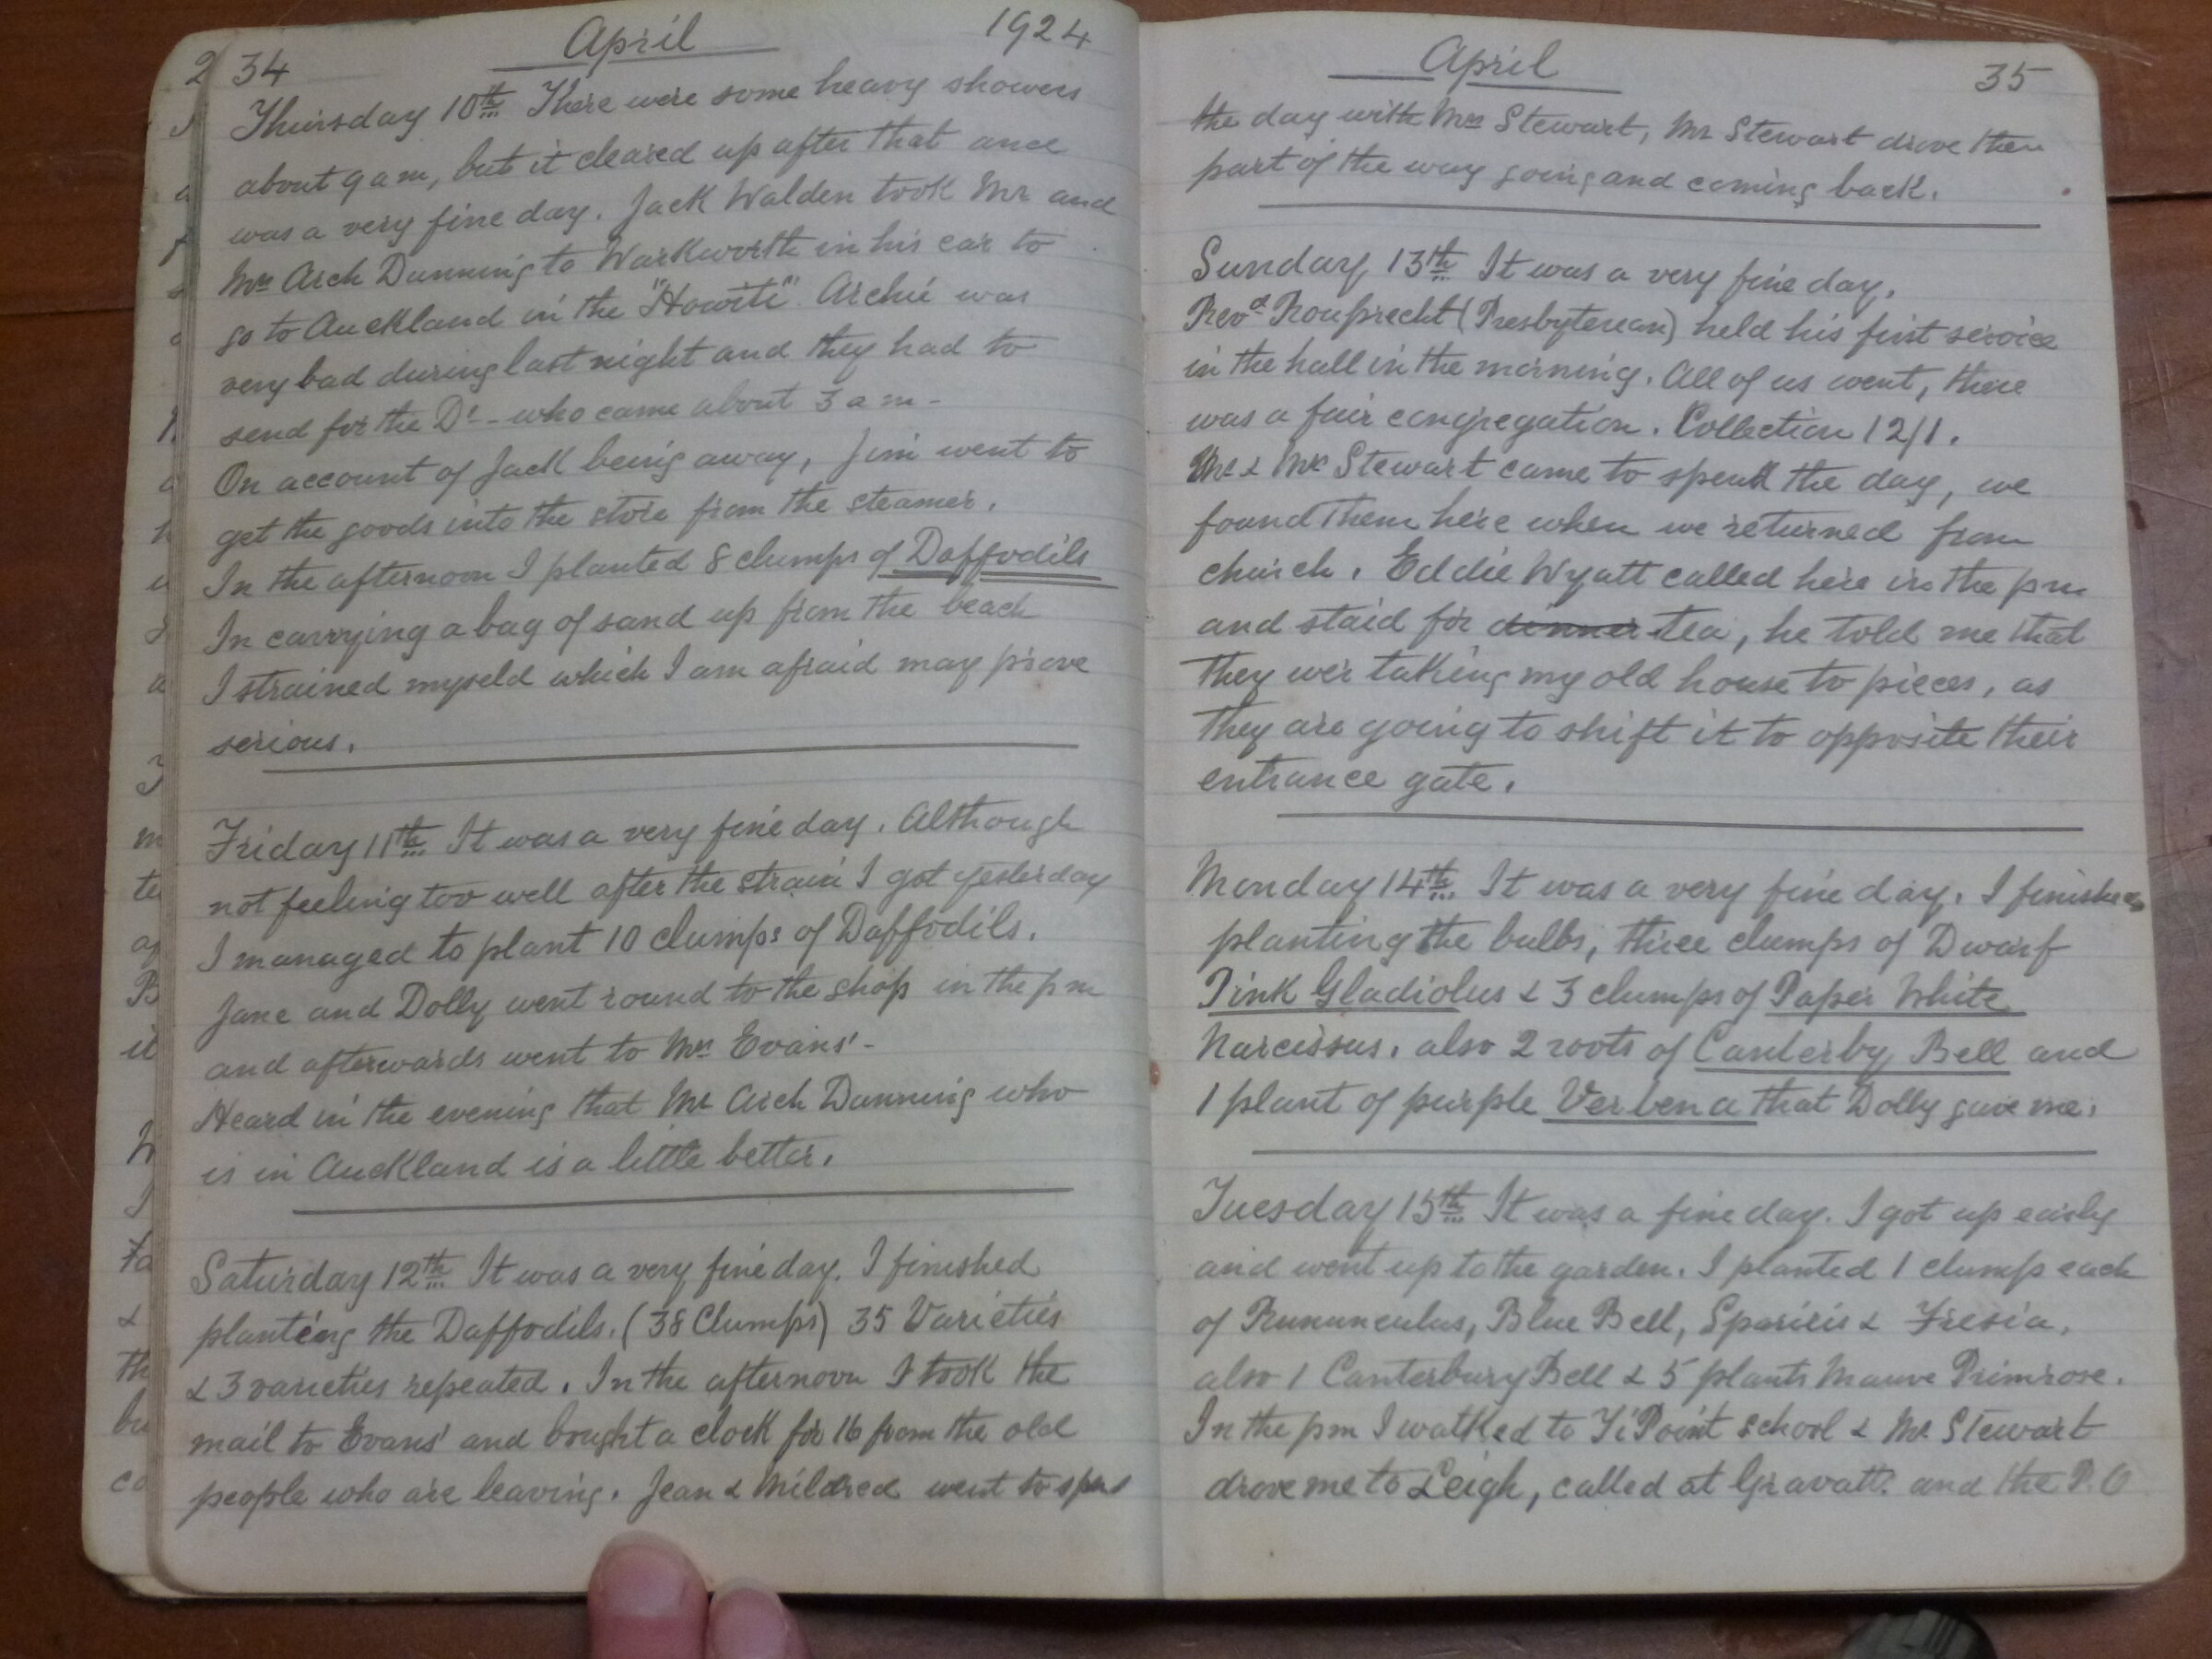 34 April 1924
Thursday 10th There were some heavy showers
about 9 am, but it cleared up after that and
was a very fine day. Jack Walden took Mr and
Mrs Arch Dunning to Warkworth in his car to
go to Auckland in the "Howiti" Archie was
very bad during last night and they had to
send for the Dr - who came about 3 am -
On account of Jack being away, Jim went to
get the goods into the store from the steamer.
In the afternoon I planted 8 clumps of Daffodils
In carrying a bag of sand up from the beach
I strained myseld which I am afraid may prove
serious.
Friday 11th It was a very fine day. Although
not feeling too well after the strain I got yesterday
I managed to plant 10 clumps of Daffodils.
Jane and Dolly went round to the shop in the pm
and afterwards went to Mrs Evans' -
Heard in the evening that Mr Arch Dunning who
is in Auckland is a little better.
Saturday 12th It was a very fine day. I finished
planting the Daffodils. (38 Clumps) 35 Varieties
& 3 varieties repeated. In the afternoon I took the
mail to Evans' and bought a clock for 16 from the old
people who are leaving. Jean & Mildred went to spend
April 35
the day with Mrs Stewart, Mr Stewart drove them
part of the way going and coming back.
Sunday 13th It was a very fine day.
Revd Rouprecht (Presbyterean) held his first service
in the hall in the morning. All of us went, there
was a fair congregation. Collection 12/1.
Mr & Mrs Stewart came to spend the day, we
found them here when we returned from
church. Eddie Wyatt called here in the pm
and staid for dinner tea, he told me that
they wer taking my old house to pieces, as
they are going to shift it to opposite their
entrance gate.
Monday 14th It was a very fine day. I finished
planting the bulbs, three clumps of Dwarf
Pink Gladiolus & 3 clumps of Paper White
Narcissus. also 2 roots of Canterby Bell and
1 plant of purple Verbena that Dolly gave me.
Tuesday 15th It was a fine day. I got up early
and went up to the garden. I planted 1 clump each
of Rununculus, Blue Bell, Spariris & Fresia.
also 1 Canterbury Bell & 5 plants Mauve Primrose.
In the pm I walked to Ti Point school & Mr Stewart
drove me to Leigh, called at Gravatt. and the P.O